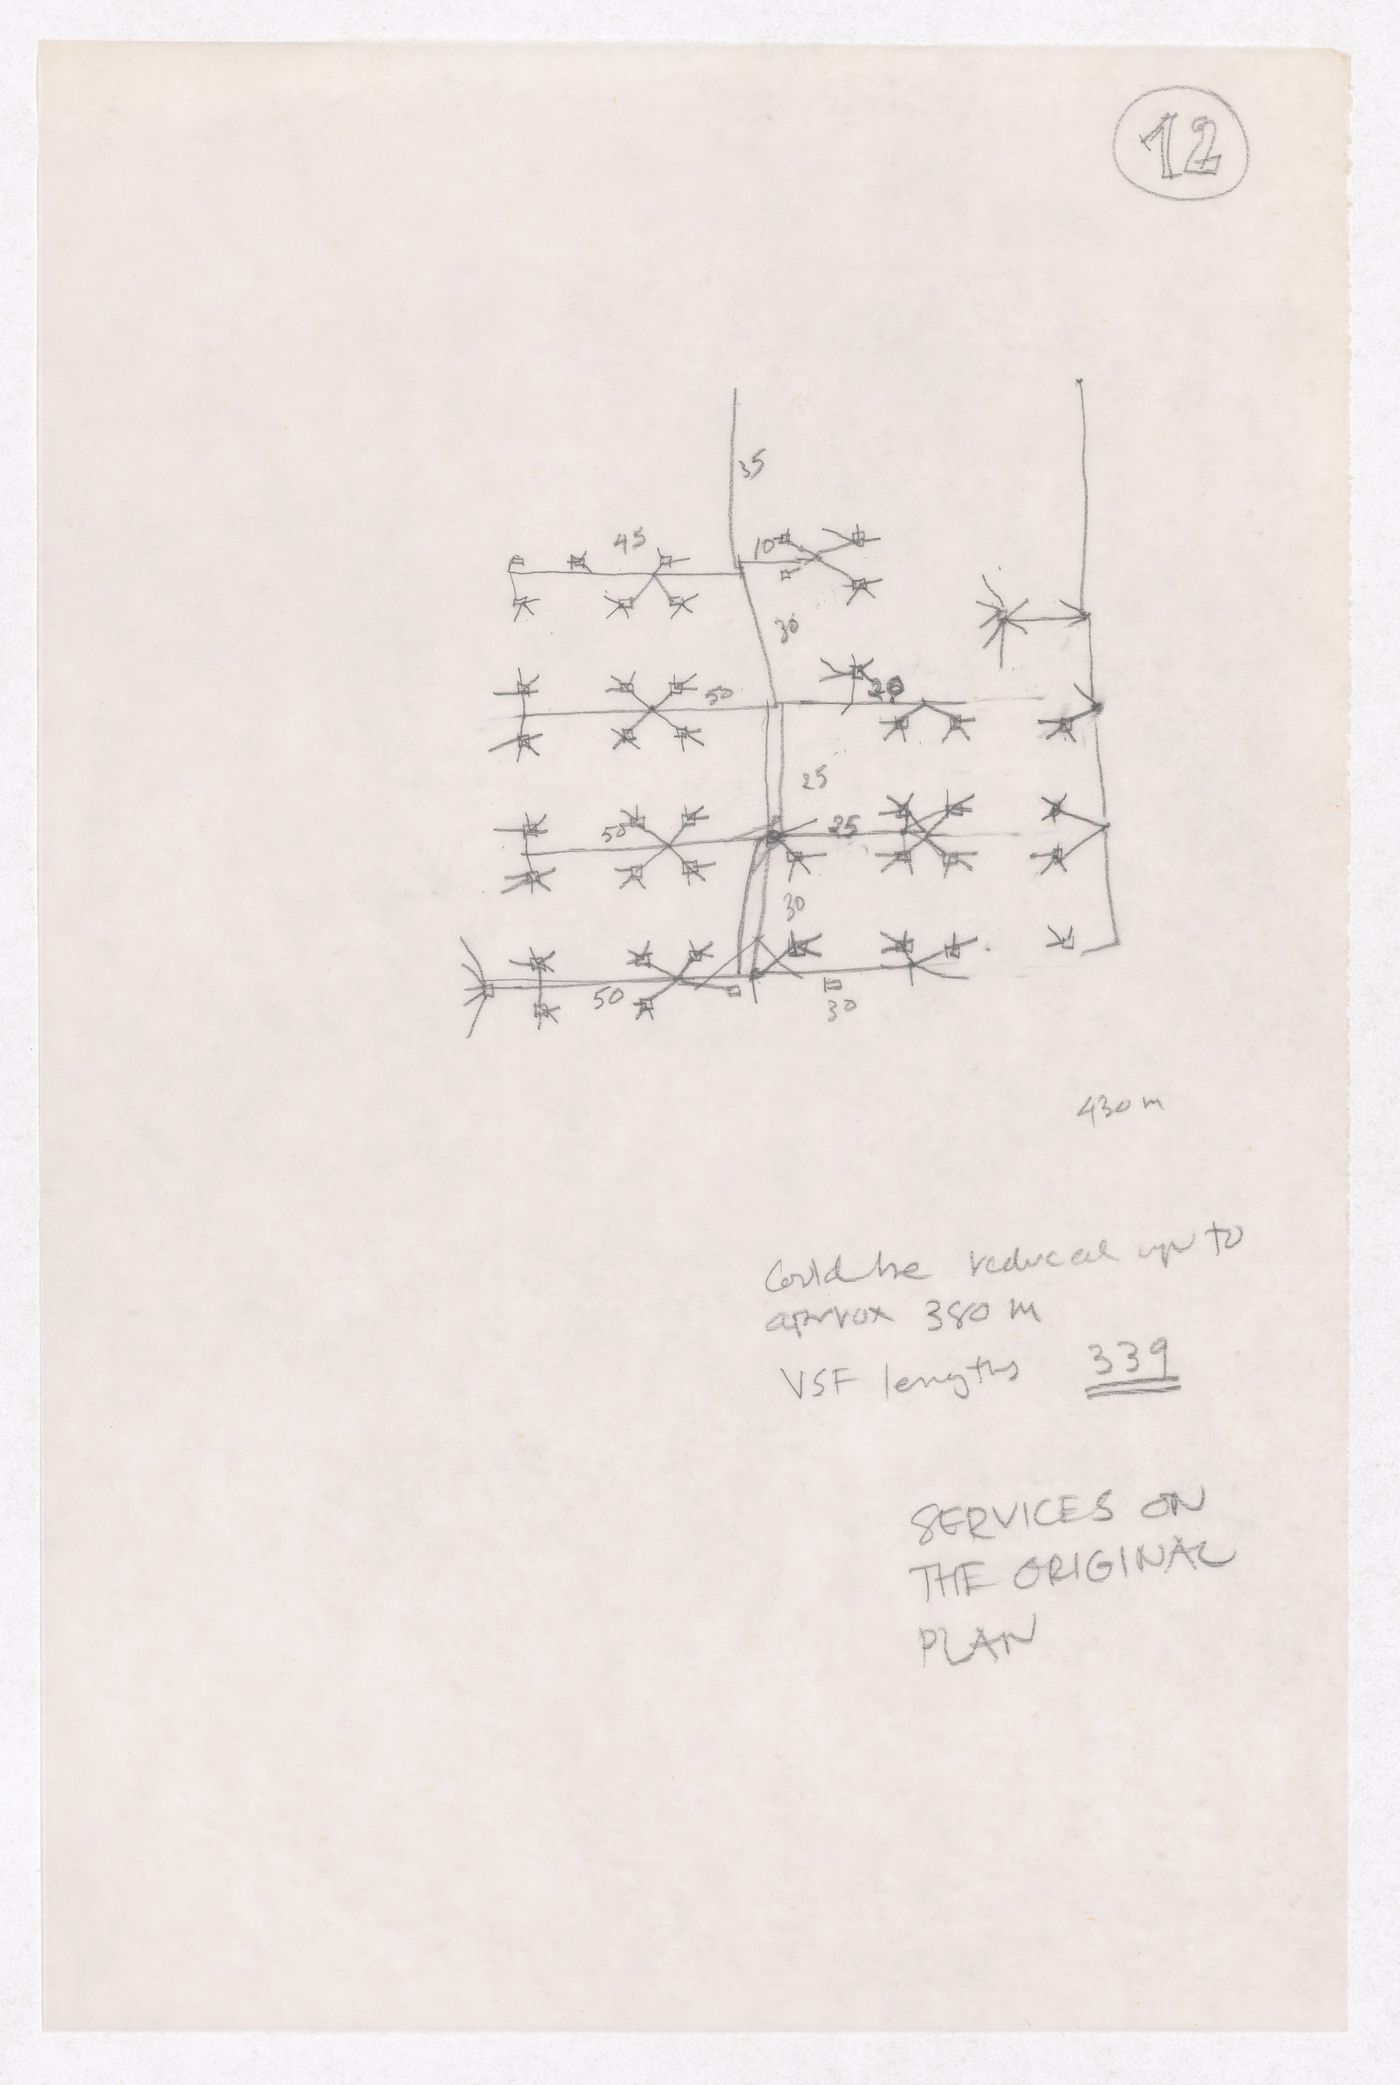 12
35
45
10
30
50
20
25
50
25
30
50
30
430 m
Could be reduced up to
aprrox 380 m
VSF lengths 339
SERVICES ON
THE ORIGINAL
PLAN